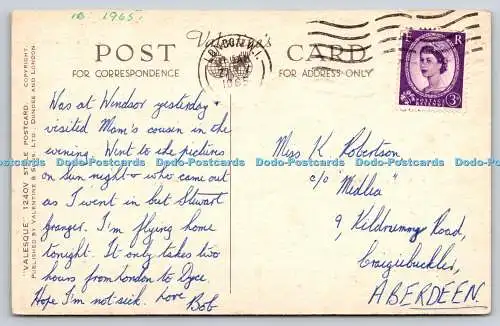 1965
Valentine's
POST CARD
FOR CORRESPONDENCE
FOR ADDRESS ONLY
LONDON W.1.
1965
R
POSTAGE REVENUE
3D
"VALESQUE" 1240V STYLE POSTCARD. COPYRIGHT.
PUBLISHED BY VALENTINE & SONS, LTD., DUNDEE AND LONDON.
Was at Windsor yesterday &
visited Mam's cousin in the
evening. Went to the pictures
on Sun night & who came out
as I went in but Stewart
Granger. I'm flying home
tonight. It only takes two
hours from London to Dyce.
Hope I'm not sick. Love Bob
Miss K. Robertson
c/o "Midlea"
9, Kildrummy Road,
Craigiebuckler,
ABERDEEN.
Dodo-Postcards Dodo-Postcards Dodo-Postcards Dodo-Postcards Dodo-Postcards Dodo-Postcards